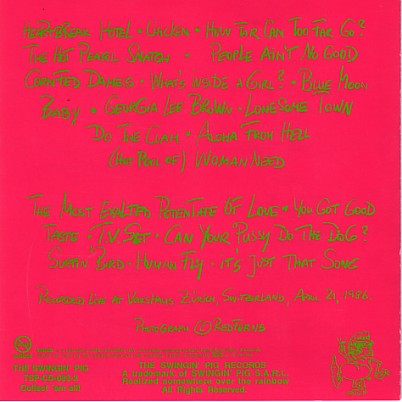 HEARTBREAK HOTEL • CHICKEN • HOW FAR CAN TOO FAR GO?
THE HOT PEARL SNATCH • PEOPLE AIN'T NO GOOD
CORNFED DAMES • WHAT'S INSIDE A GIRL? • BLUE MOON
BABY • GEORGIA LEE BROWN • LONESOME TOWN
DO THE CLAM • ALOHA FROM HELL
(HOT POOL OF) WOMAN NEED
THE MOST EXALTED POTENTATE OF LOVE • YOU GOT GOOD
TASTE • T.V. SET • CAN YOUR PUSSY DO THE DOG?
SURFIN' BIRD • HUMAN FLY • IT'S JUST THAT SONG
RECORDED LIVE AT VOLKSHAUS, ZÜRICH, SWITZERLAND, APRIL 21, 1986.
THE SWINGIN' PIG RECORDS
A trademark of SWINGIN' PIG S.A.R.L.
Realized somewhere over the rainbow
All Rights Reserved.
THE SWINGIN' PIG